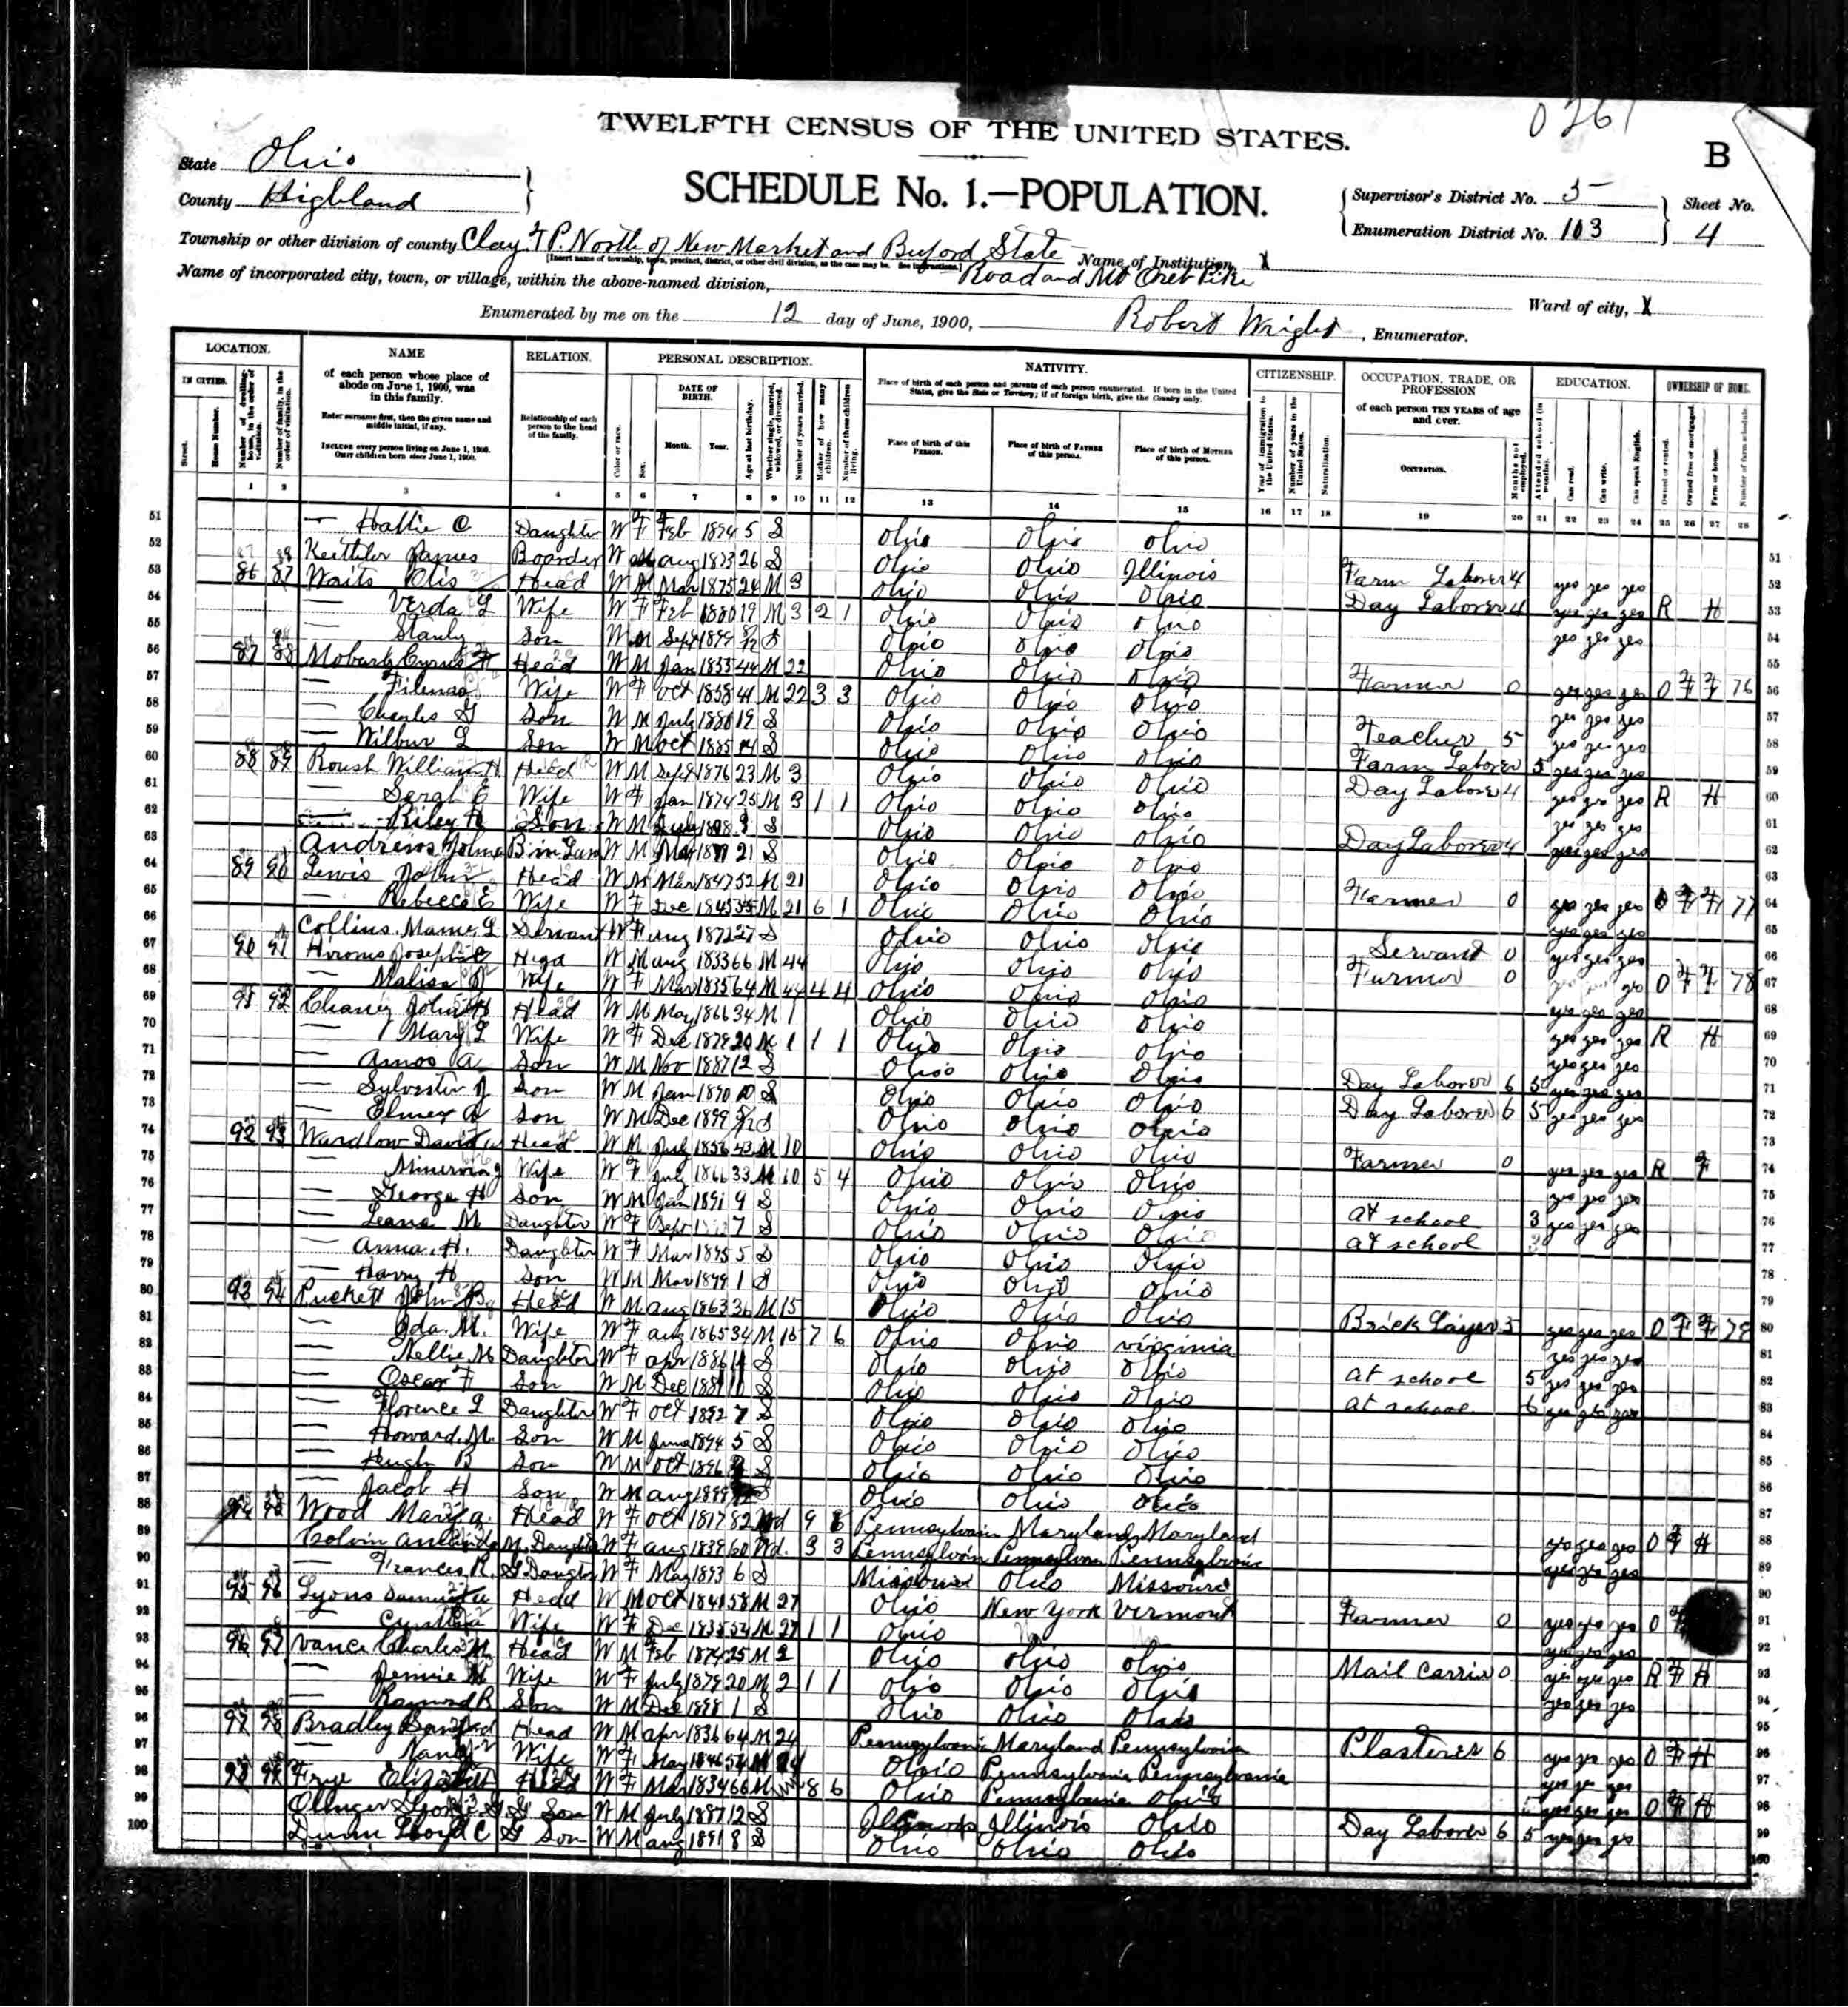 0261
TWELFTH CENSUS OF THE UNITED STATES.
B
State Ohio
County Highland
SCHEDULE No. 1.—POPULATION.
Supervisor's District No. 5
Enumeration District No. 103
Sheet No. 4
Township or other division of county Clay TP. North of New Market and Buford State
[Insert name of township, town, precinct, district, or other civil division, as the case may be. See instructions.]
Name of Institution, X
Name of incorporated city, town, or village, within the above-named division, Road and Mt Oreb Pike
Ward of city, X
Enumerated by me on the 12 day of June, 1900, Robert Wright, Enumerator.
LOCATION. NAME RELATION. PERSONAL DESCRIPTION. NATIVITY. CITIZENSHIP. OCCUPATION, TRADE, OR PROFESSION EDUCATION. OWNERSHIP OF HOME.
IN CITIES. of each person whose place of abode on June 1, 1900, was in this family.
Enter surname first, then the given name and middle initial, if any.
INCLUDE every person living on June 1, 1900. OMIT children born since June 1, 1900.
Relationship of each person to the head of the family.
DATE OF BIRTH. Month. Year.
Place of birth of each person and parents of each person enumerated. If born in the United States, give the State or Territory; if of foreign birth, give the Country only.
Place of birth of this PERSON. Place of birth of FATHER of this person. Place of birth of MOTHER of this person.
of each person TEN YEARS of age and over.
OCCUPATION.
1 2 3 4 5 6 7 8 9 10 11 12 13 14 15 16 17 18 19 20 21 22 23 24 25 26 27 28
51 — Hallie O Daughter W F Feb 1894 5 S Ohio Ohio Ohio
52 James Boarder W M Aug 1873 26 S Ohio Ohio Illinois Farm Laborer 4 yes yes yes
53 86 87 Waits Otis Head W M Mar 1875 24 M 3 Ohio Ohio Ohio Day Laborer 4 yes yes yes R H
54 — Verda L Wife W F Feb 1880 19 M 3 2 1 Ohio Ohio Ohio yes yes yes
55 — Stanly Son W M Sept 1899 S Ohio Ohio Ohio
56 87 88 Cyrus Head W M Jan 44 M 22 Ohio Ohio Ohio Farmer 0 yes yes yes O F F 76
57 — Wife W F Oct 1858 41 M 22 3 3 Ohio Ohio Ohio yes yes yes
58 — Charles G Son W M July 1880 19 S Ohio Ohio Ohio Teacher 5 yes yes yes
59 — Wilbur L Son W M Oct 1885 14 S Ohio Ohio Ohio Farm Laborer 5 yes yes yes
60 88 89 Roush William H Head W M Sept 1876 23 M 3 Ohio Ohio Ohio Day Laborer 4 yes yes yes R H
61 — Sarah E Wife W F Jan 1874 25 M 3 1 1 Ohio Ohio Ohio yes yes yes
62 — Riley Son W M S Ohio Ohio Ohio
63 Andrews B in Law W M 21 S Ohio Ohio Ohio Day Laborer 4 yes yes yes
64 89 90 Lewis John Head W M Mar 1847 52 M 21 Ohio Ohio Ohio Farmer 0 yes yes yes O F F 77
65 — Rebecca E Wife W F Dec 1845 M 21 6 1 Ohio Ohio Ohio yes yes yes
66 Collins Mame L Servant W F Aug 1872 27 S Ohio Ohio Ohio Servant 0 yes yes yes
67 90 91 Hirons Joseph Head W M Aug 1833 66 M 44 Ohio Ohio Ohio Farmer 0 yes O F F 78
68 — Malisa Wife W F Mar 1835 64 M 44 4 4 Ohio Ohio Ohio yes yes yes
69 91 92 Chaney John H Head W M May 1866 34 M 1 Ohio Ohio Ohio yes yes yes R H
70 — Mary L Wife W F Dec 1879 20 M 1 1 1 Ohio Ohio Ohio yes yes yes
71 — Amos A Son W M Nov 1887 12 S Ohio Ohio Ohio Day Laborer 6 5 yes yes yes
72 — Sylvester Son W M Jan 1890 10 S Ohio Ohio Ohio Day Laborer 6 5 yes yes yes
73 — Son W M Dec 1899 S Ohio Ohio Ohio
74 92 93 Wardlow David Head W M July 1856 43 M 10 Ohio Ohio Ohio Farmer 0 yes yes yes R F
75 — Minerva Wife W F July 1866 33 M 10 5 4 Ohio Ohio Ohio yes yes yes
76 — George H Son W M Jan 1891 9 S Ohio Ohio Ohio At school 3 yes yes yes
77 — Leana M Daughter W F Sept 7 S Ohio Ohio Ohio At school
78 — Anna H. Daughter W F Mar 1895 5 S Ohio Ohio Ohio
79 — Harry H Son W M Mar 1899 1 S Ohio Ohio Ohio
80 93 94 Puckett John B Head W M Aug 1863 36 M 15 Ohio Ohio Ohio Brick Layer 5 yes yes yes O F F 79
81 — Ida M. Wife W F Aug 1865 34 M 15 7 6 Ohio Ohio Virginia yes yes yes
82 — Nellie M Daughter W F Apr 1886 14 S Ohio Ohio Ohio At school 5 yes yes yes
83 — Oscar F Son W M Dec 1889 10 S Ohio Ohio Ohio At school 6 yes yes yes
84 — Florence L Daughter W F Oct 1892 7 S Ohio Ohio Ohio
85 — Howard M. Son W M June 1894 5 S Ohio Ohio Ohio
86 — Hugh B Son W M Oct 1896 S Ohio Ohio Ohio
87 — Jacob H Son W M Aug 1899 S Ohio Ohio Ohio
88 94 95 Wood Mary A. Head W F Oct 1817 82 Wd 9 Pennsylvania Maryland Maryland yes yes yes O F H
89 Colvin Daughter W F Aug 1839 60 Wd. 3 3 Pennsylvania Pennsylvania Pennsylvania yes yes yes
90 — Frances R. G Daughter W F May 1893 6 S Missouri Ohio Missouri
91 95 96 Lyons Head W M Oct 1841 58 M 27 Ohio New York Vermont Farmer 0 yes yes yes O F
92 — Cynthia Wife W F Dec 54 M 27 1 1 Ohio yes yes yes
93 96 97 Vance Charles M. Head W M Feb 1874 25 M 2 Ohio Ohio Ohio Mail Carrier 0 yes yes yes R F H
94 — Jennie M Wife W F July 1879 20 M 2 1 1 Ohio Ohio Ohio yes yes yes
95 — Raymond R Son W M Dec 1898 1 S Ohio Ohio Ohio
96 97 98 Bradley Head W M Apr 1836 64 M 24 Pennsylvania Maryland Pennsylvania Plasterer 6 yes yes yes O F H
97 — Nancy Wife W F May 1846 M 24 Ohio Pennsylvania Pennsylvania yes yes yes
98 98 99 Frye Elizabeth Head W F Mar 1834 66 8 6 Ohio Pennsylvania Ohio yes yes yes O F H
99 Ollinger George G Son W M July 1887 12 S Illinois Illinois Ohio Day Laborer 6 5 yes yes yes
100 Dunn Lloyd C G Son W M Aug 1891 8 S Ohio Ohio Ohio